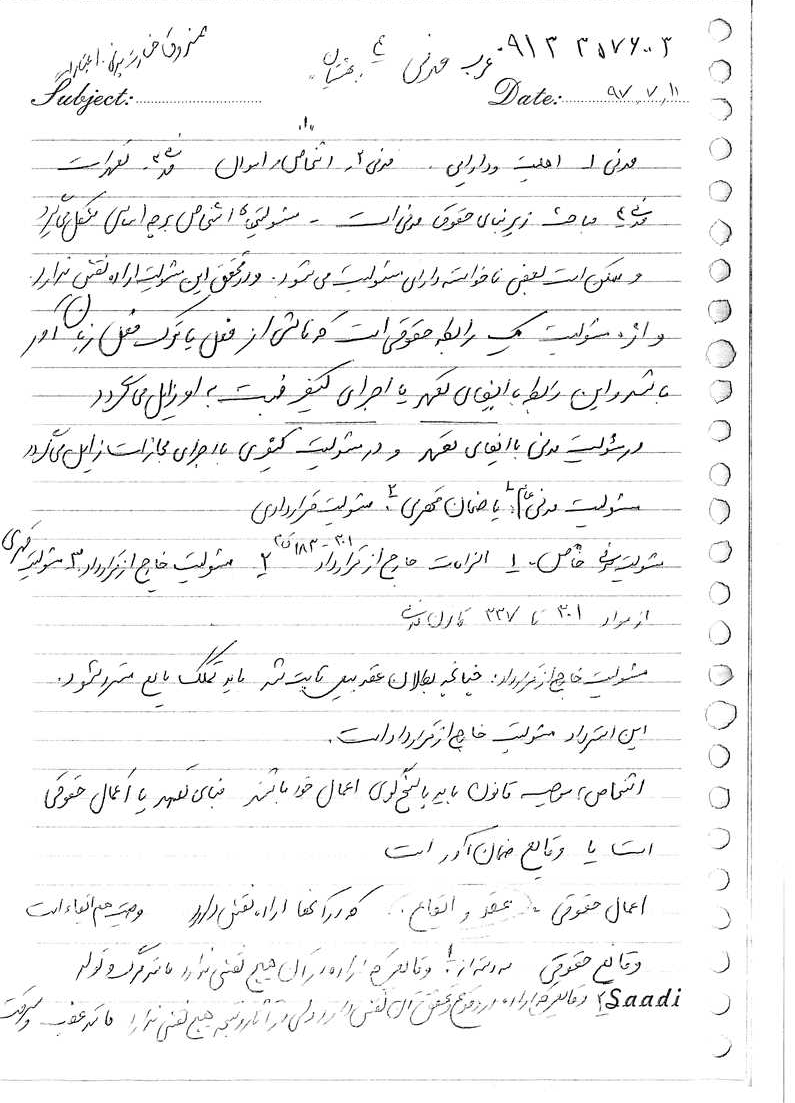 ۰۹۱۳ ۳۵۷۶۰۰۳
Subject: Date: ۹۷,۷,۱۱
مدنی ۱_ اهلیت ودارایی . مدنی ۲_ اشخاص و اموال مدنی ۳_ تعهدات
مدنی ۴ مباحث زیربنای حقوق مدنی است _ مسئولیت اشخاص برچه اساس شکل می‌گیرد
و ممکن است بعضی ناخواسته دارای مسئولیت می شود. و در تحقق این مسئولیت اراده نقشی ندارد.
واژه مسئولیت یک رابطه حقوقی است که ناشی از فعل یا ترک فعل زیان آور
باشد و این رابطه با ایفای تعهد یا اجرای کیفر نسبت به او زایل می گردد
در مسئولیت مدنی با ایفای تعهد و در مسئولیت کیفری با اجرای مجازات زایل می‌گردد
مسئولیت مدنی عام: ۱_ یا ضمان قهری ۲_ مسئولیت قراردادی
مسئولیت مدنی خاص. ۱_ الزامات خارج از قرارداد ۳۰۱ - ۱۸۳ ق م ۲_ مسئولیت خارج از قرارداد ۳_ مسئولیت قهری
از مواد ۳۰۱ تا ۳۳۷ قانون مدنی
مسئولیت خارج از قرارداد: چنانچه بطلان عقد بیع ثابت شد باید تملک بایع مسترد شود.
این استرداد مسئولیت خارج از قرارداد است.
اشخاص به موجب قانون باید پاسخ گوی اعمال خود باشند مبنای تعهد یا اعمال حقوقی
است یا وقایع ضمان آور است
اعمال حقوقی _ عقد و ایقاع. که در آنها اراده نقش دارد
وقایع حقوقی دو دسته‌اند ۱_ وقایعی که اراده در آن هیچ نقشی ندارد مانند مرگ و تولد
۲_ وقایعی که اراده در وقوع و تحقق آن نقش دارد ولی در آثار و نتیجه هیچ نقشی ندارد مانند غصب و سرقت
Saadi